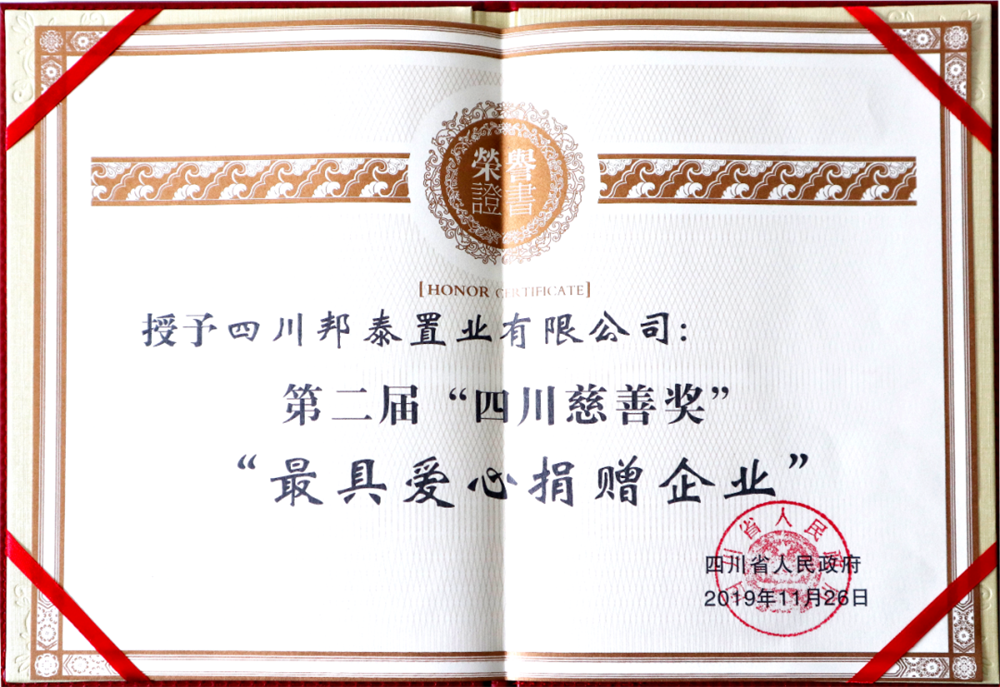 榮譽
證書
[HONOR CERTIFICATE]
授予四川邦泰置业有限公司：
第二届“四川慈善奖”
“最具爱心捐赠企业”
四川省人民政府
2019年11月26日
四川省人民政府